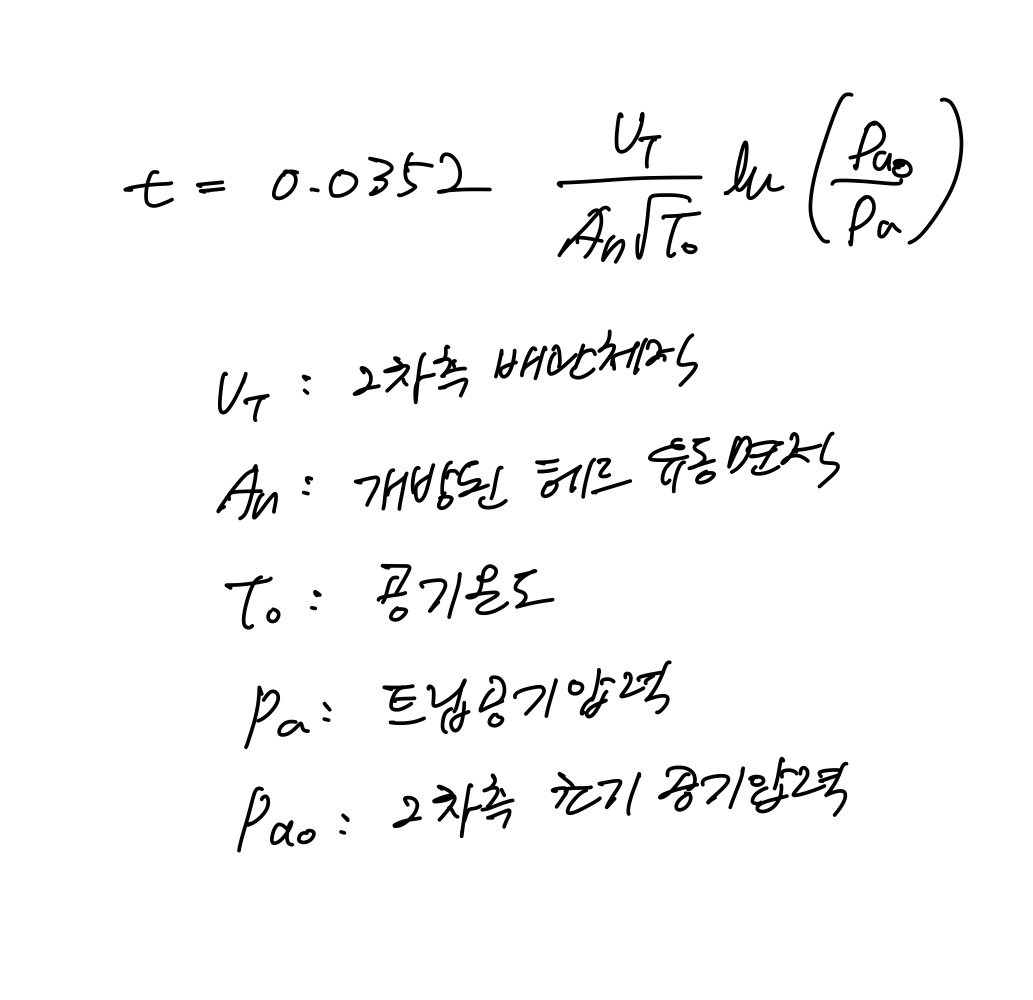 t = 0.0352 V_T / (A_n √T_0) ln (P_{a0} / P_a)
V_T : 2차측 배관체적
A_n : 개방된 헤드 유동면적
T_0 : 공기온도
P_a : 트립공기압력
P_{a0} : 2차측 초기 공기압력